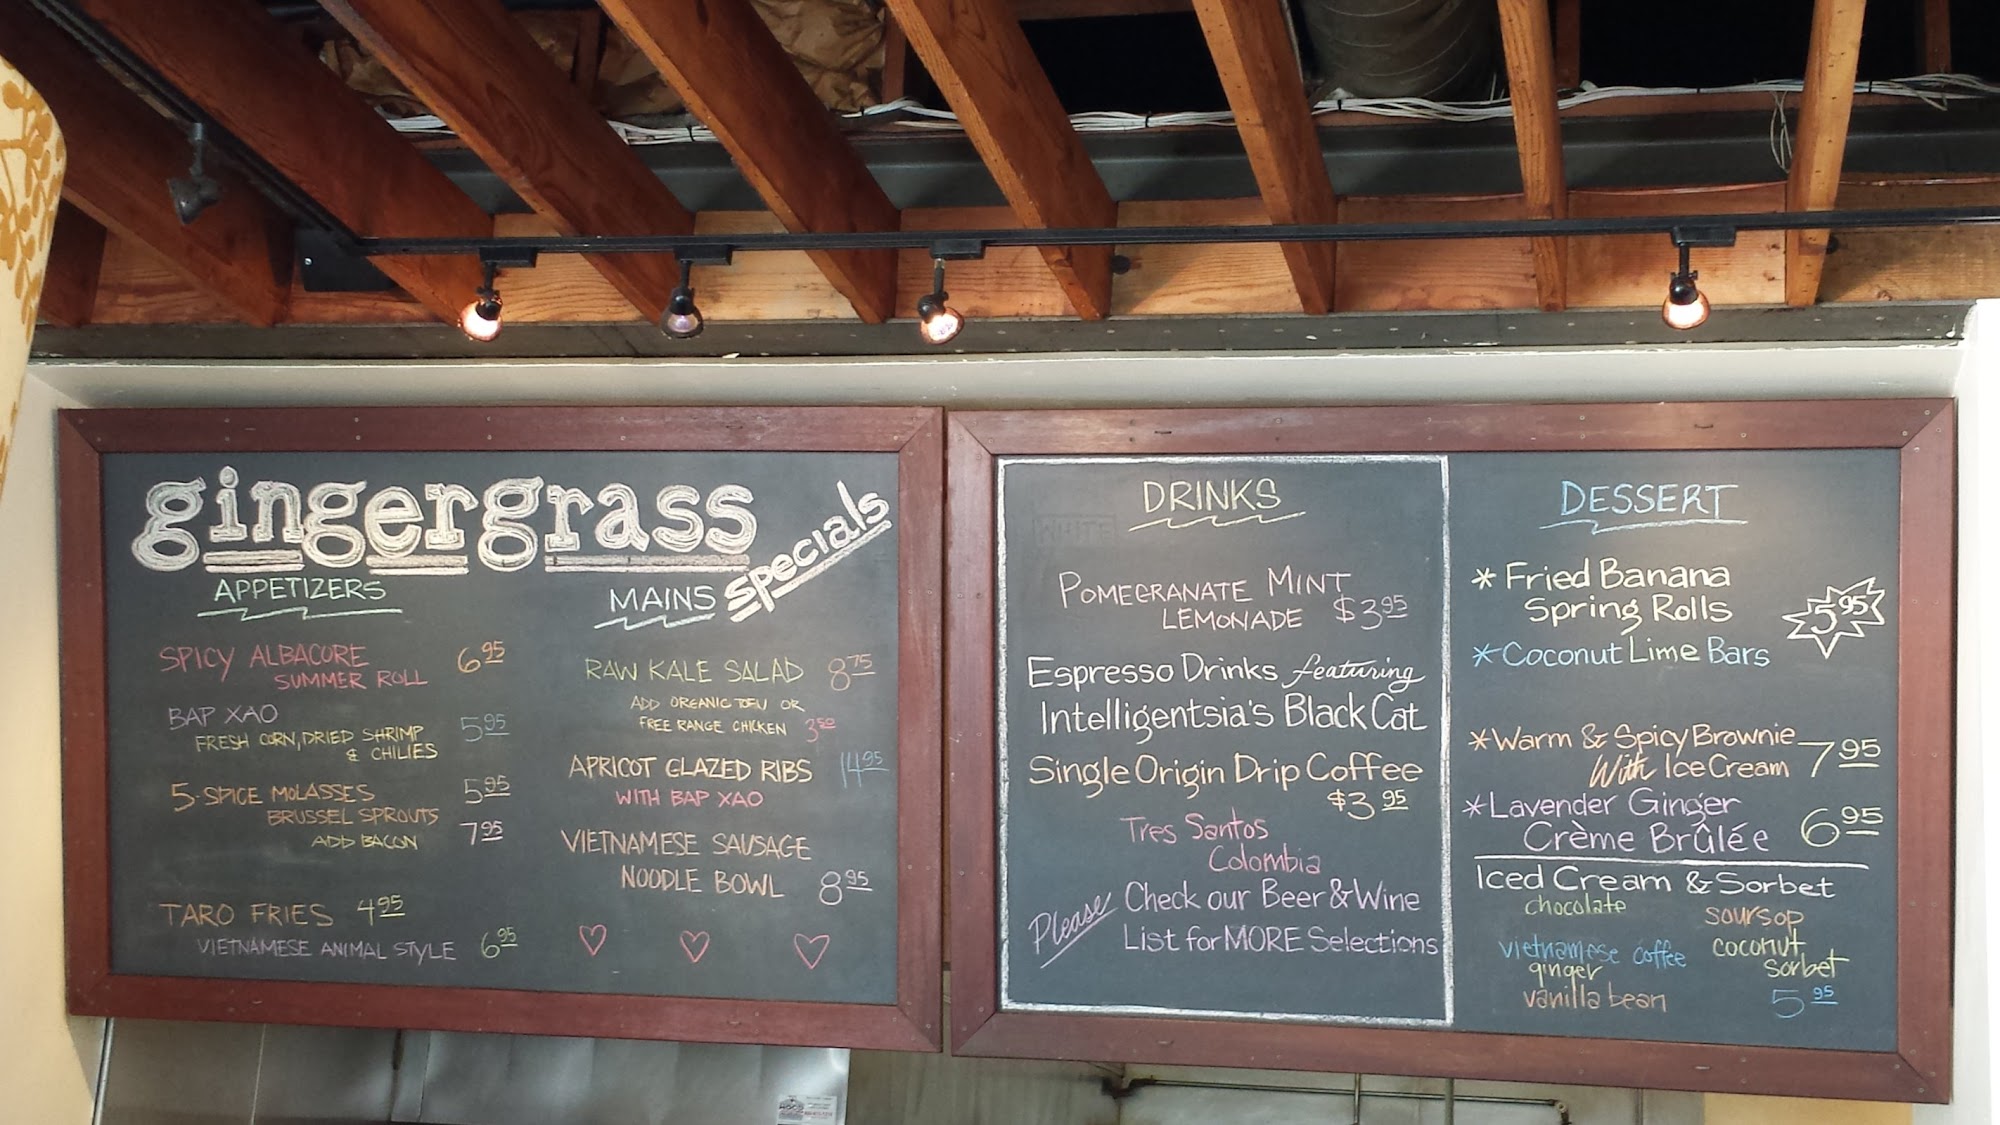 gingergrass
specials
APPETIZERS
SPICY ALBACORE
SUMMER ROLL 6.95
BAP XAO
FRESH CORN, DRIED SHRIMP
& CHILIES 5.95
5-SPICE MOLASSES 5.95
BRUSSEL SPROUTS
ADD BACON 7.95
TARO FRIES 4.95
VIETNAMESE ANIMAL STYLE 6.95
MAINS
RAW KALE SALAD 8.75
ADD ORGANIC TOFU OR
FREE RANGE CHICKEN 3.50
APRICOT GLAZED RIBS 14.95
WITH BAP XAO
VIETNAMESE SAUSAGE
NOODLE BOWL 8.95
DRINKS
WHITE
POMEGRANATE MINT
LEMONADE $3.95
Espresso Drinks featuring
Intelligentsia's Black Cat
Single Origin Drip Coffee
$3.95
Tres Santos
Colombia
Please Check our Beer & Wine
List for MORE Selections
DESSERT
* Fried Banana
Spring Rolls 5.95
* Coconut Lime Bars
* Warm & Spicy Brownie
With Ice Cream 7.95
* Lavender Ginger
Crème Brûlée 6.95
Iced Cream & Sorbet
chocolate
vietnamese coffee
ginger
vanilla bean
soursop
coconut
sorbet
5.95